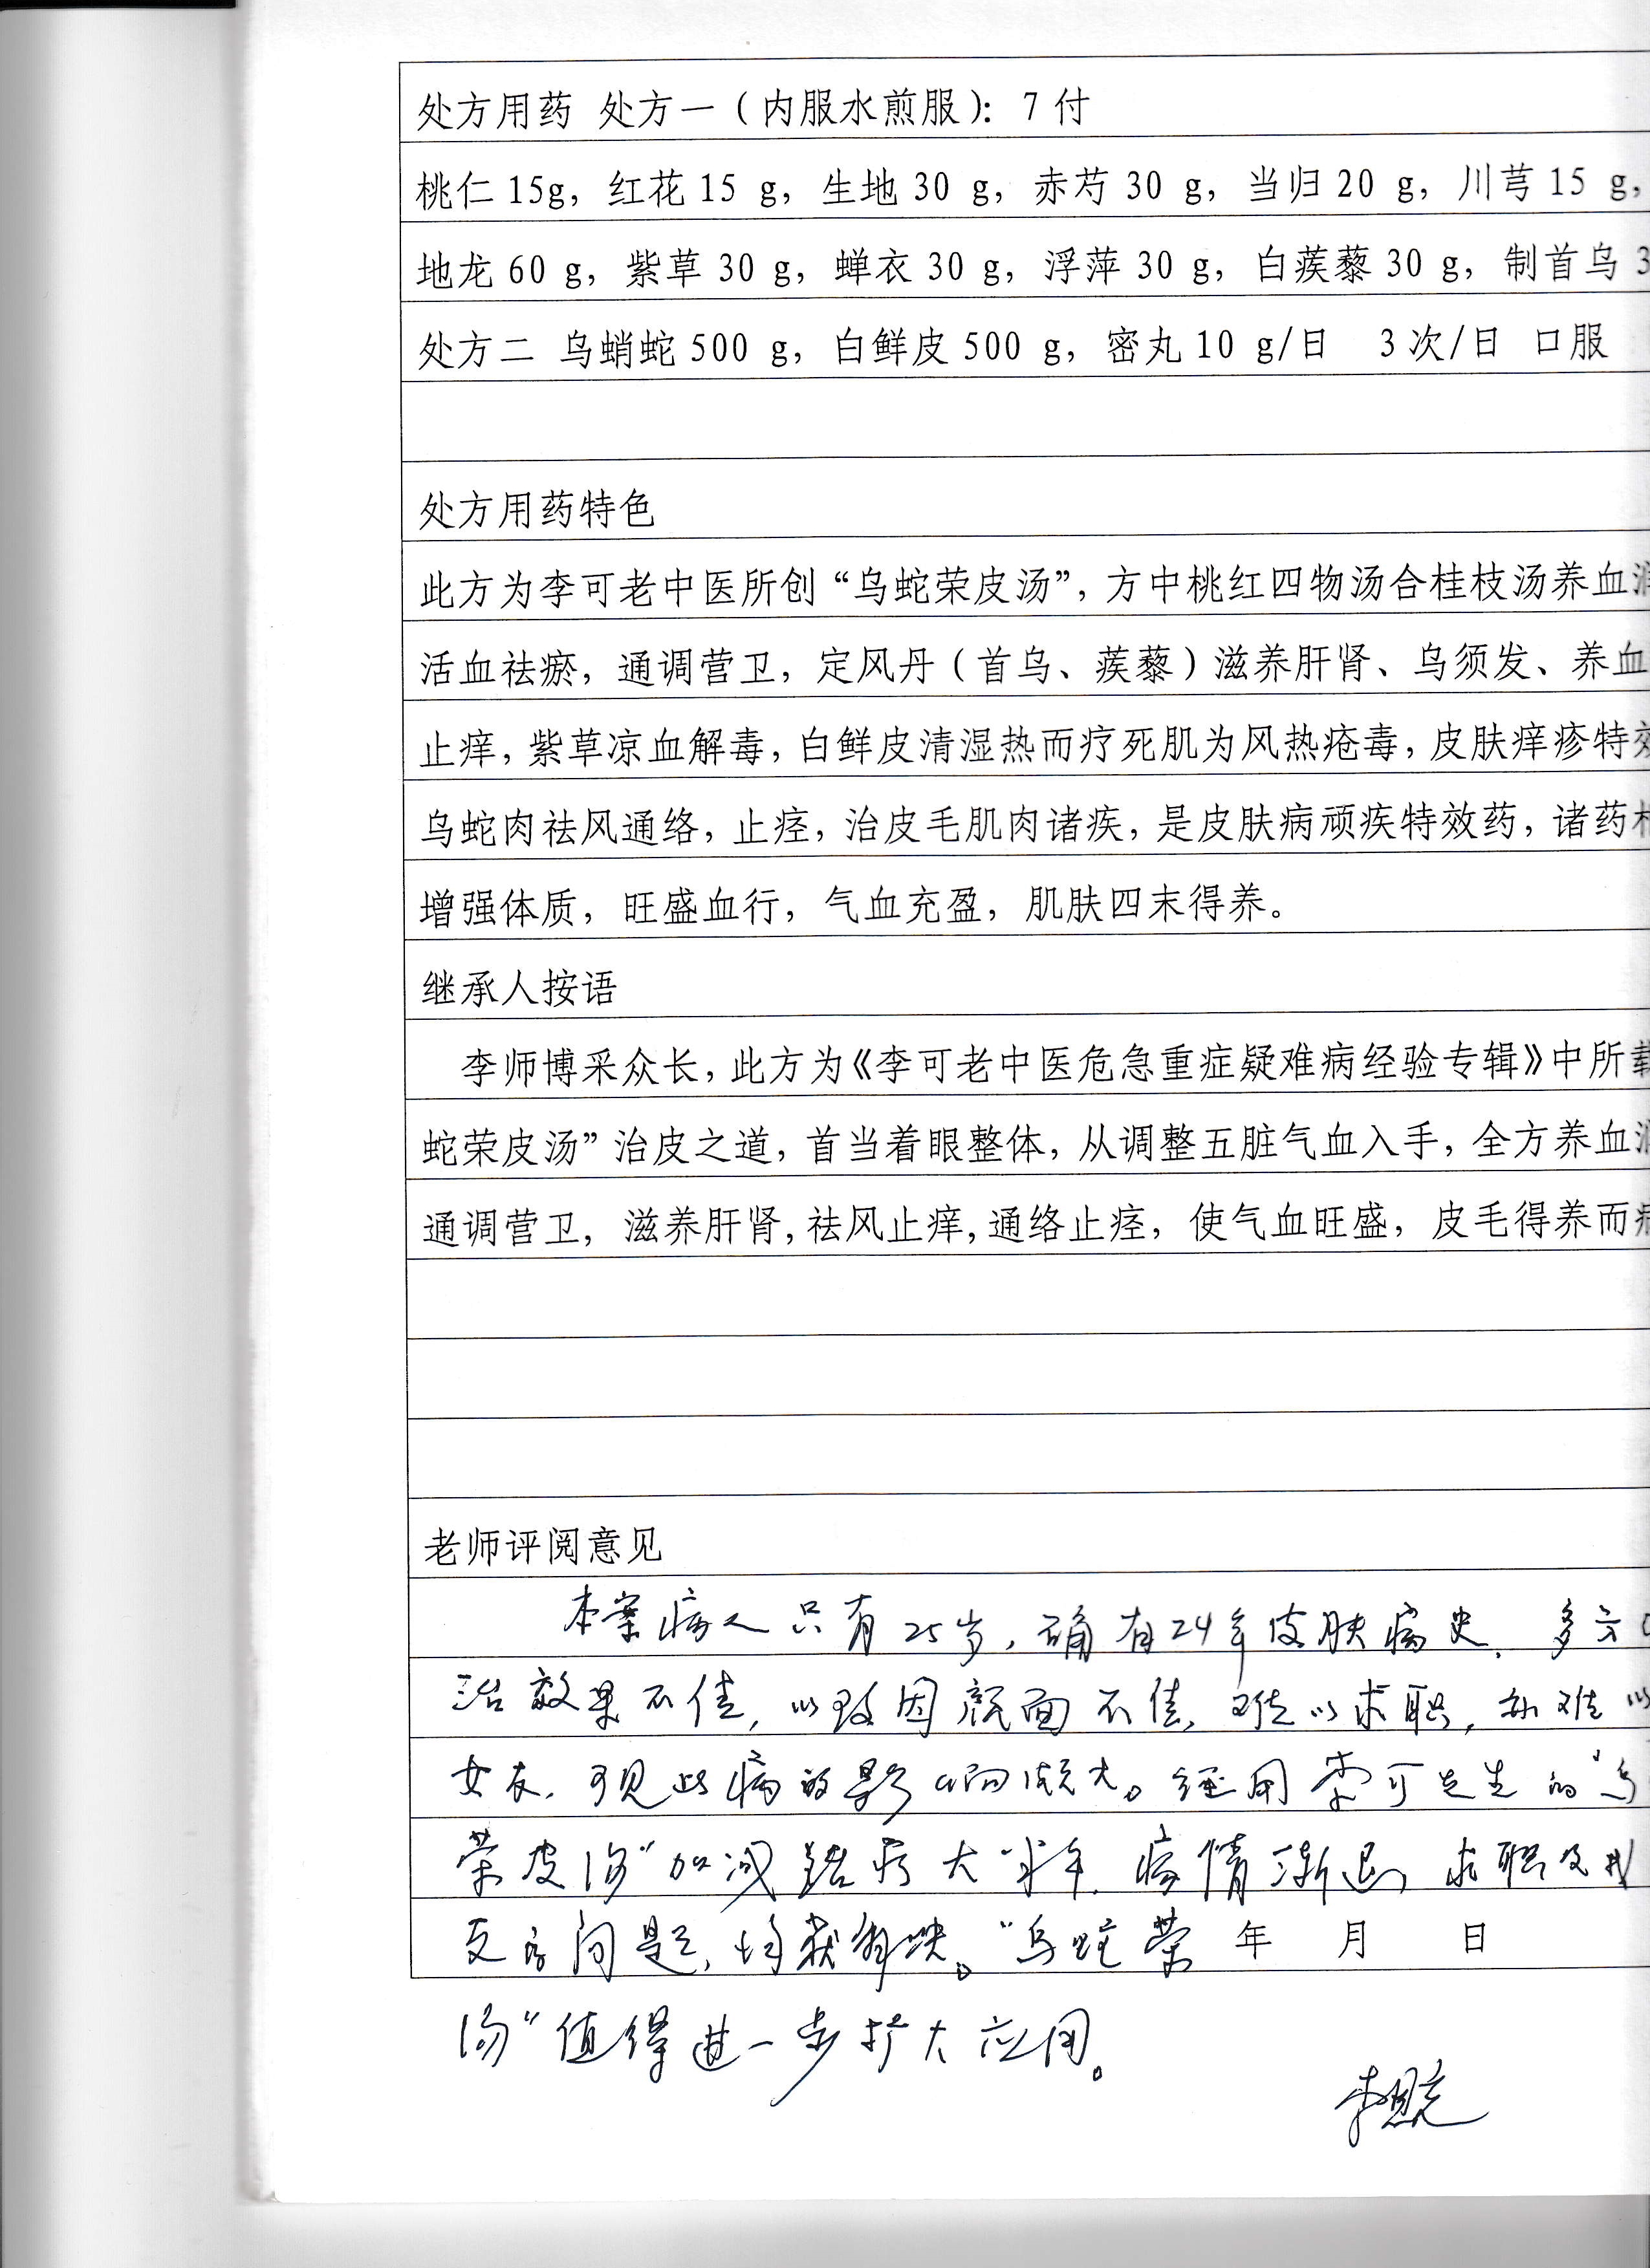 处方用药 处方一（内服水煎服）：7 付
桃仁 15g，红花 15 g，生地 30 g，赤芍 30 g，当归 20 g，川芎 15 g，
地龙 60 g，紫草 30 g，蝉衣 30 g，浮萍 30 g，白蒺藜 30 g，制首乌 3
处方二 乌蛸蛇 500 g，白鲜皮 500 g，密丸 10 g/日 3 次/日 口服
处方用药特色
此方为李可老中医所创“乌蛇荣皮汤”，方中桃红四物汤合桂枝汤养血润
活血祛瘀，通调营卫，定风丹（首乌、蒺藜）滋养肝肾、乌须发、养血
止痒，紫草凉血解毒，白鲜皮清湿热而疗死肌为风热疮毒，皮肤痒疹特效
乌蛇肉祛风通络，止痉，治皮毛肌肉诸疾，是皮肤病顽疾特效药，诸药
增强体质，旺盛血行，气血充盈，肌肤四末得养。
继承人按语
李师博采众长，此方为《李可老中医危急重症疑难病经验专辑》中所载
蛇荣皮汤”治皮之道，首当着眼整体，从调整五脏气血入手，全方养血润
通调营卫，滋养肝肾，祛风止痒，通络止痉，使气血旺盛，皮毛得养而
老师评阅意见
本案病人只有25岁，确有24年皮肤病史，多方
治效果不佳，以致因颜面不佳，难以求职，亦难以
女友，可见此病的影响颇大。经用李可先生的“乌
荣皮汤”加减治疗大半年，病情渐退，求职及找
友方问题，均获解决。“乌蛇荣 年 月 日
汤”值得进一步扩大应用。